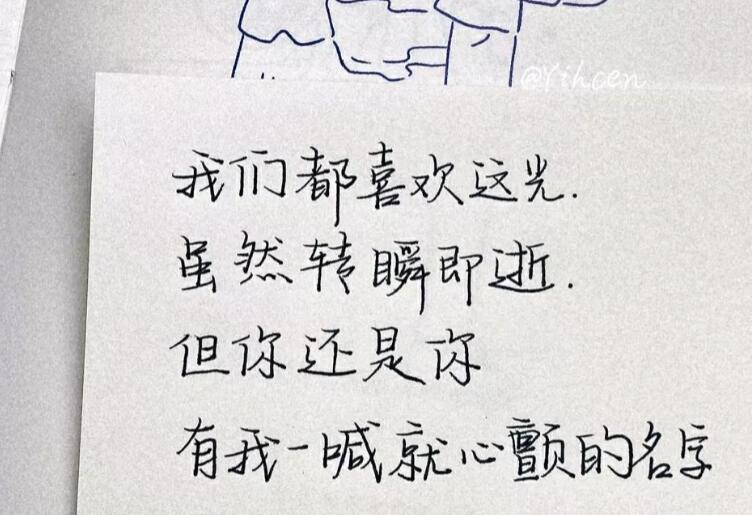 @Yihcen
我们都喜欢这光.
虽然转瞬即逝.
但你还是你
有我一喊就心颤的名字